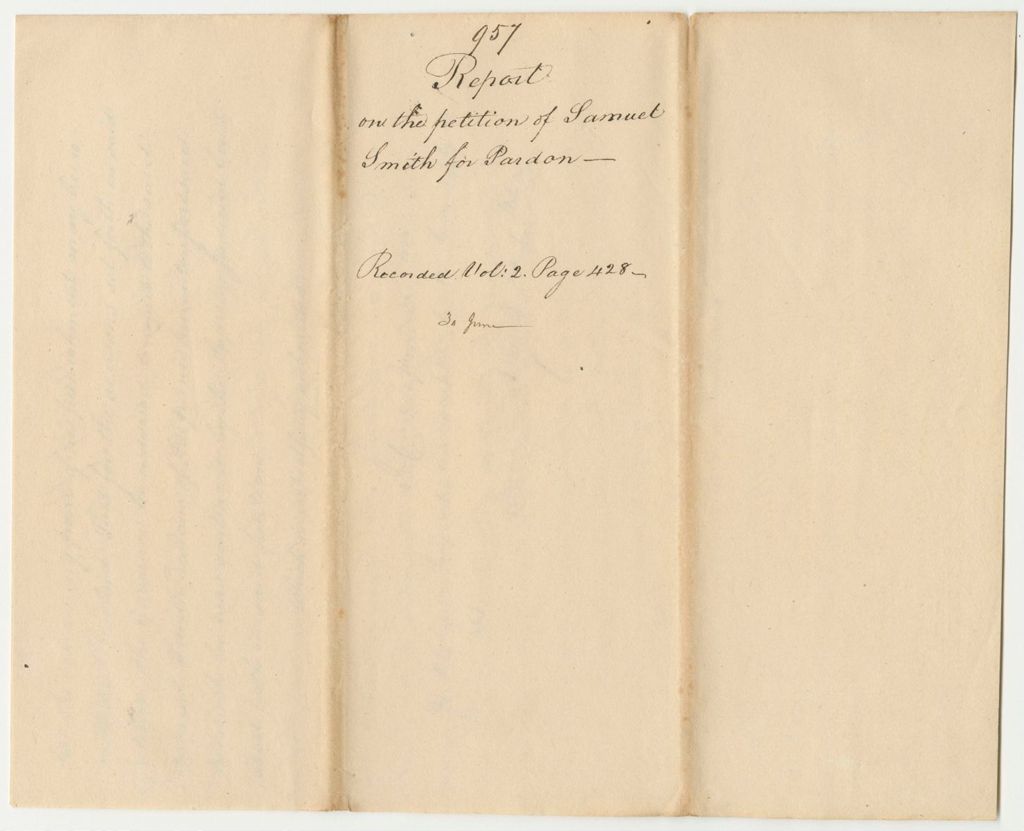 957
Report
on the petition of Samuel
Smith for Pardon —
Recorded Vol: 2. Page 428 —
30 June —